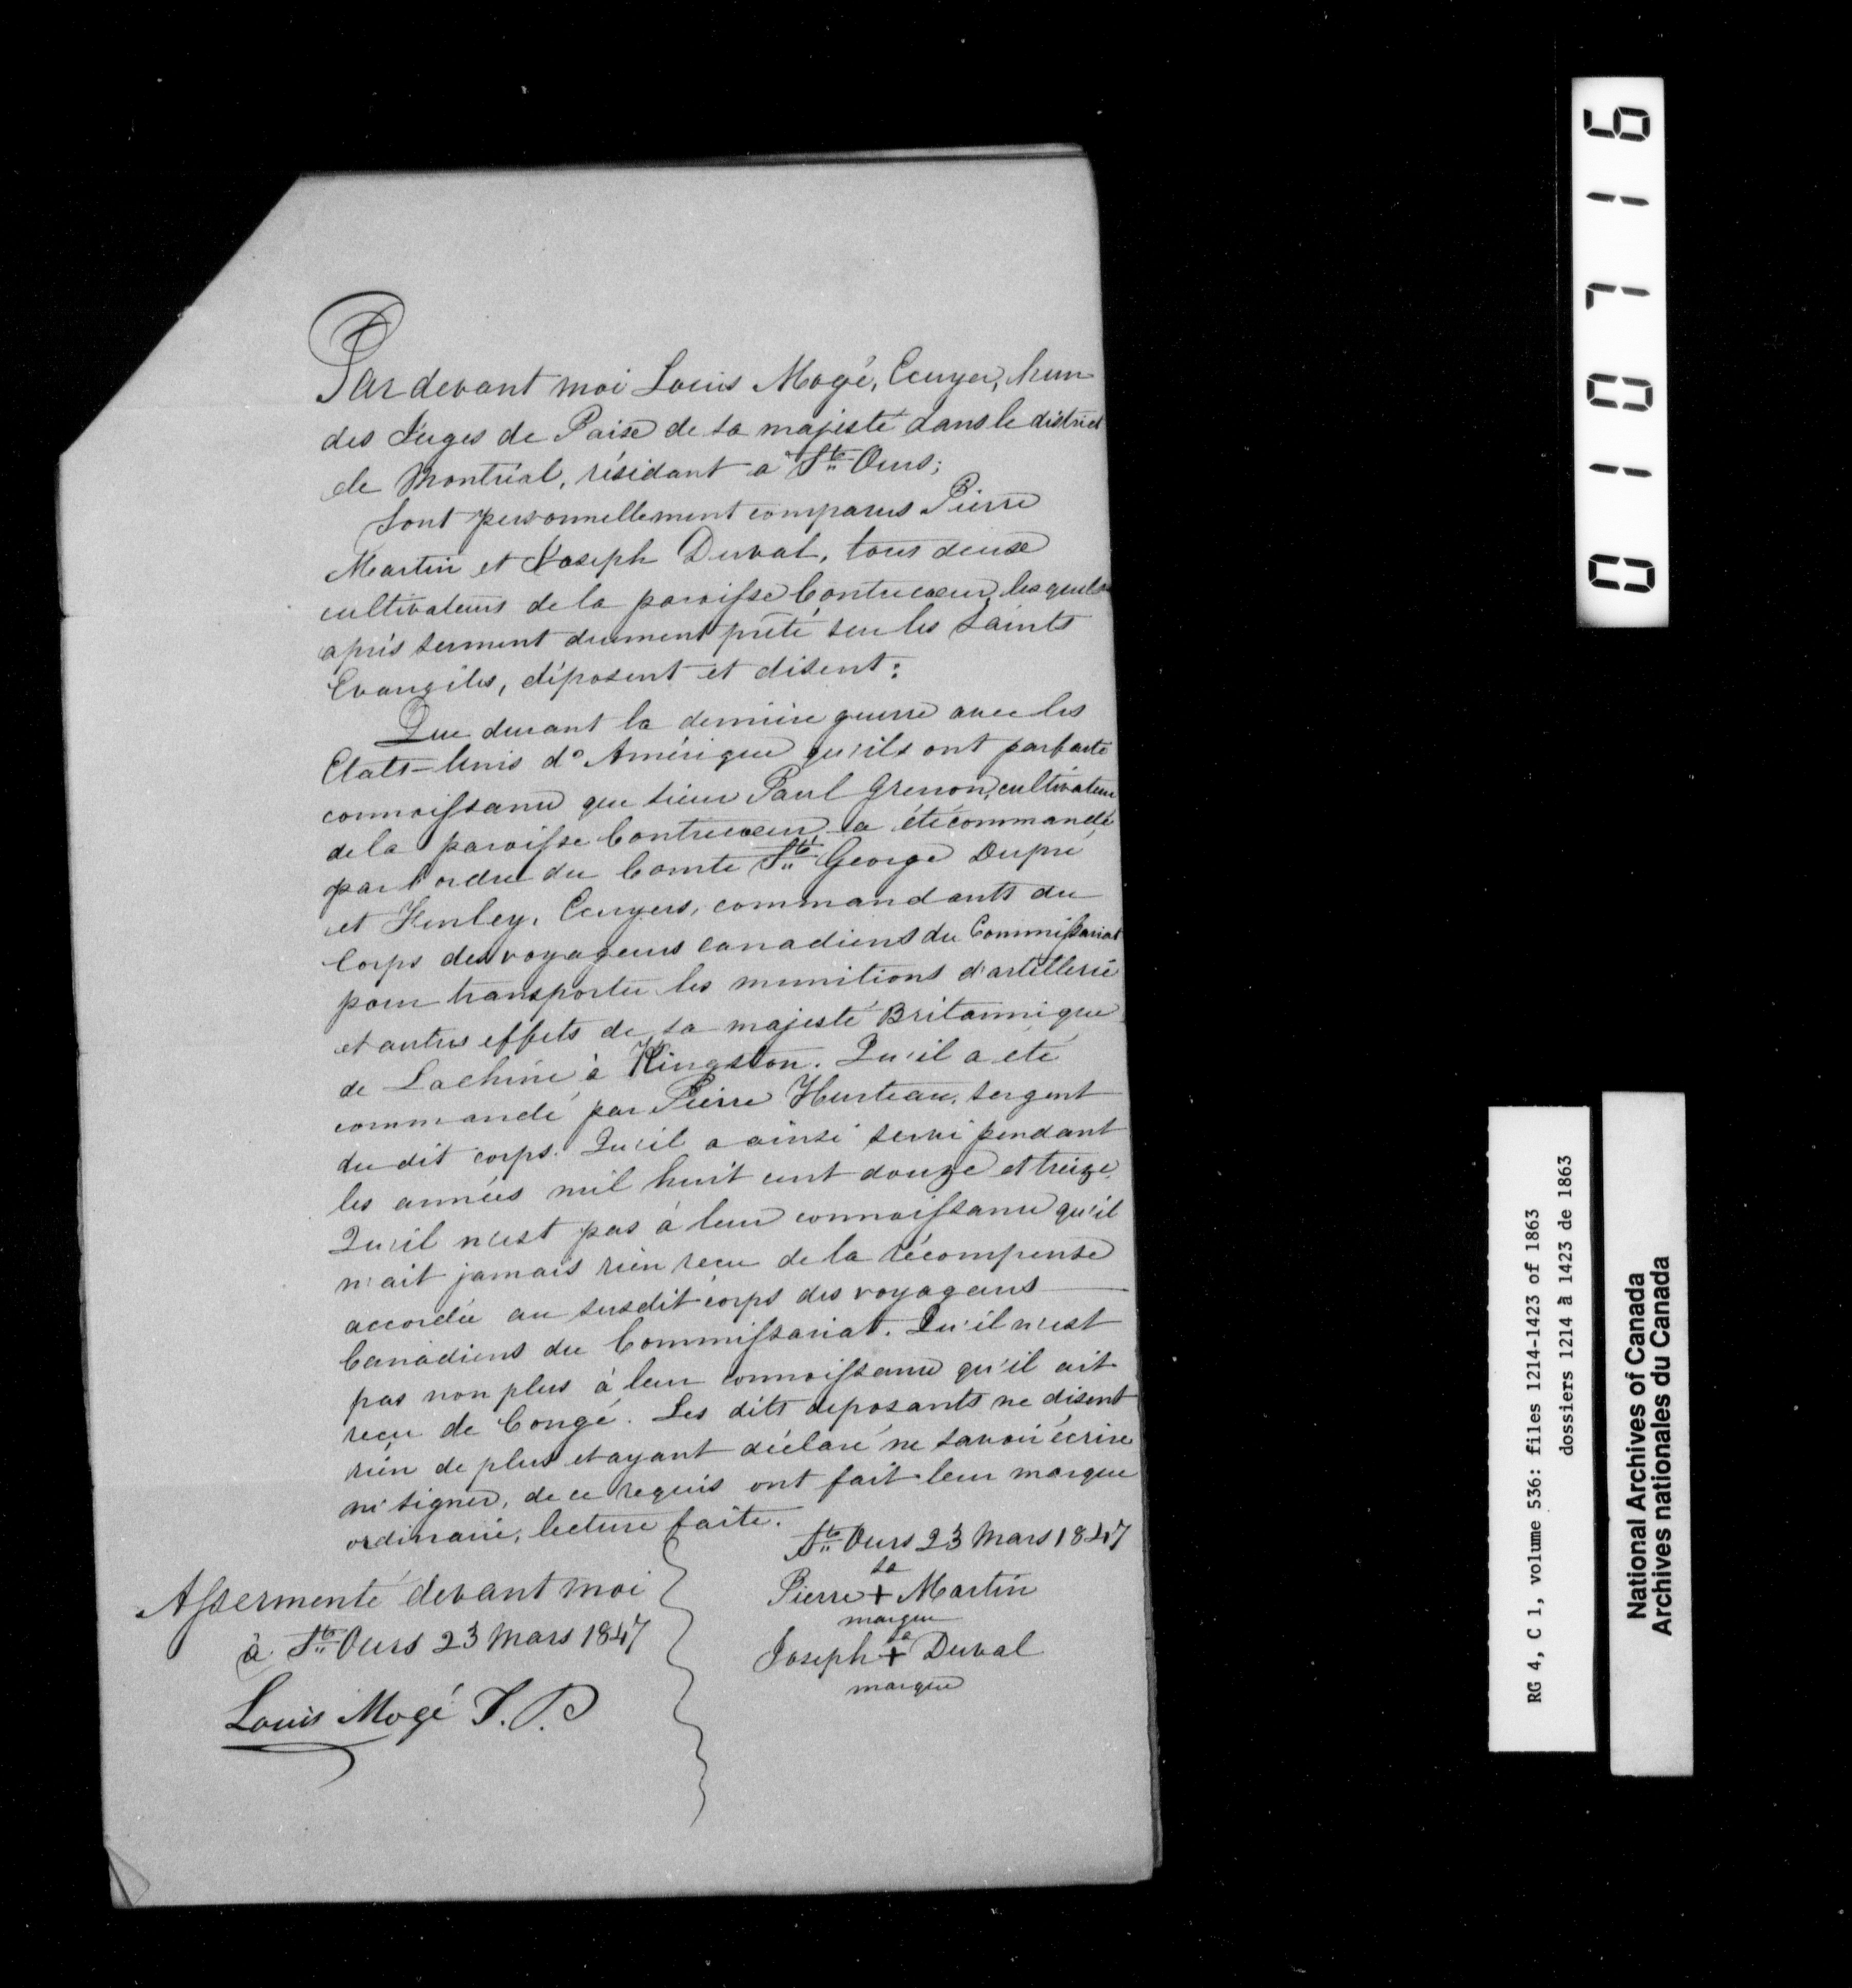 Par devant moi Louis Mogé, Ecuyer, l'un
des Juges de Paix de sa majesté dans le district
de Montréal, résidant a St. Ours;
Sont personnellement comparus Pierre
Martin et Joseph Duval, tous deux
cultivateurs de la paroisse Contrecoeur, lesquels
après serment duement prêté sur les Saints
Evangiles, déposent et disent:
Que durant la dernière guerre avec les
Etats-Unis d'Amérique qu'ils ont parfaite
connoissance que sieur Paul Grenon, cultivateur
de la paroisse Contrecoeur, a été commandé
par l'ordre du Comte St. George Dupré
et Finley, Ecuyers, commandants du
Corps des voyageurs canadiens du Commissariat
pour transporter les munitions d'artillerie
et autres effets de sa majesté Britannique
de Lachine à Kingston. Qu'il a été
commandé par Pierre Hurteau, sergent
du dit corps. Qu'il a ainsi servi pendant
les années mil huit cent douze et treize.
Qu'il n'est pas à leur connoissance qu'il
n'ait jamais rien recu de la récompense
accordée au susdit corps des voyageurs
Canadiens du Commissariat. Qu'il n'est
pas non plus à leur connoissance qu'il ait
recu de Congé. Les dits deposants ne disent
rien de plus et ayant déclaré ne savoir écrire
ni signer, de ce requis ont fait leur marque
ordinaire, lecture faite.
St. Ours 23 Mars 1847
sa
Pierre + Martin
marque
sa
Joseph + Duval
marque
Assermenté devant moi
à St. Ours 23 Mars 1847
Louis Mogé J.P.
010716
RG 4, C 1, volume 536: files 1214-1423 of 1863
dossiers 1214 à 1423 de 1863
National Archives of Canada
Archives nationales du Canada